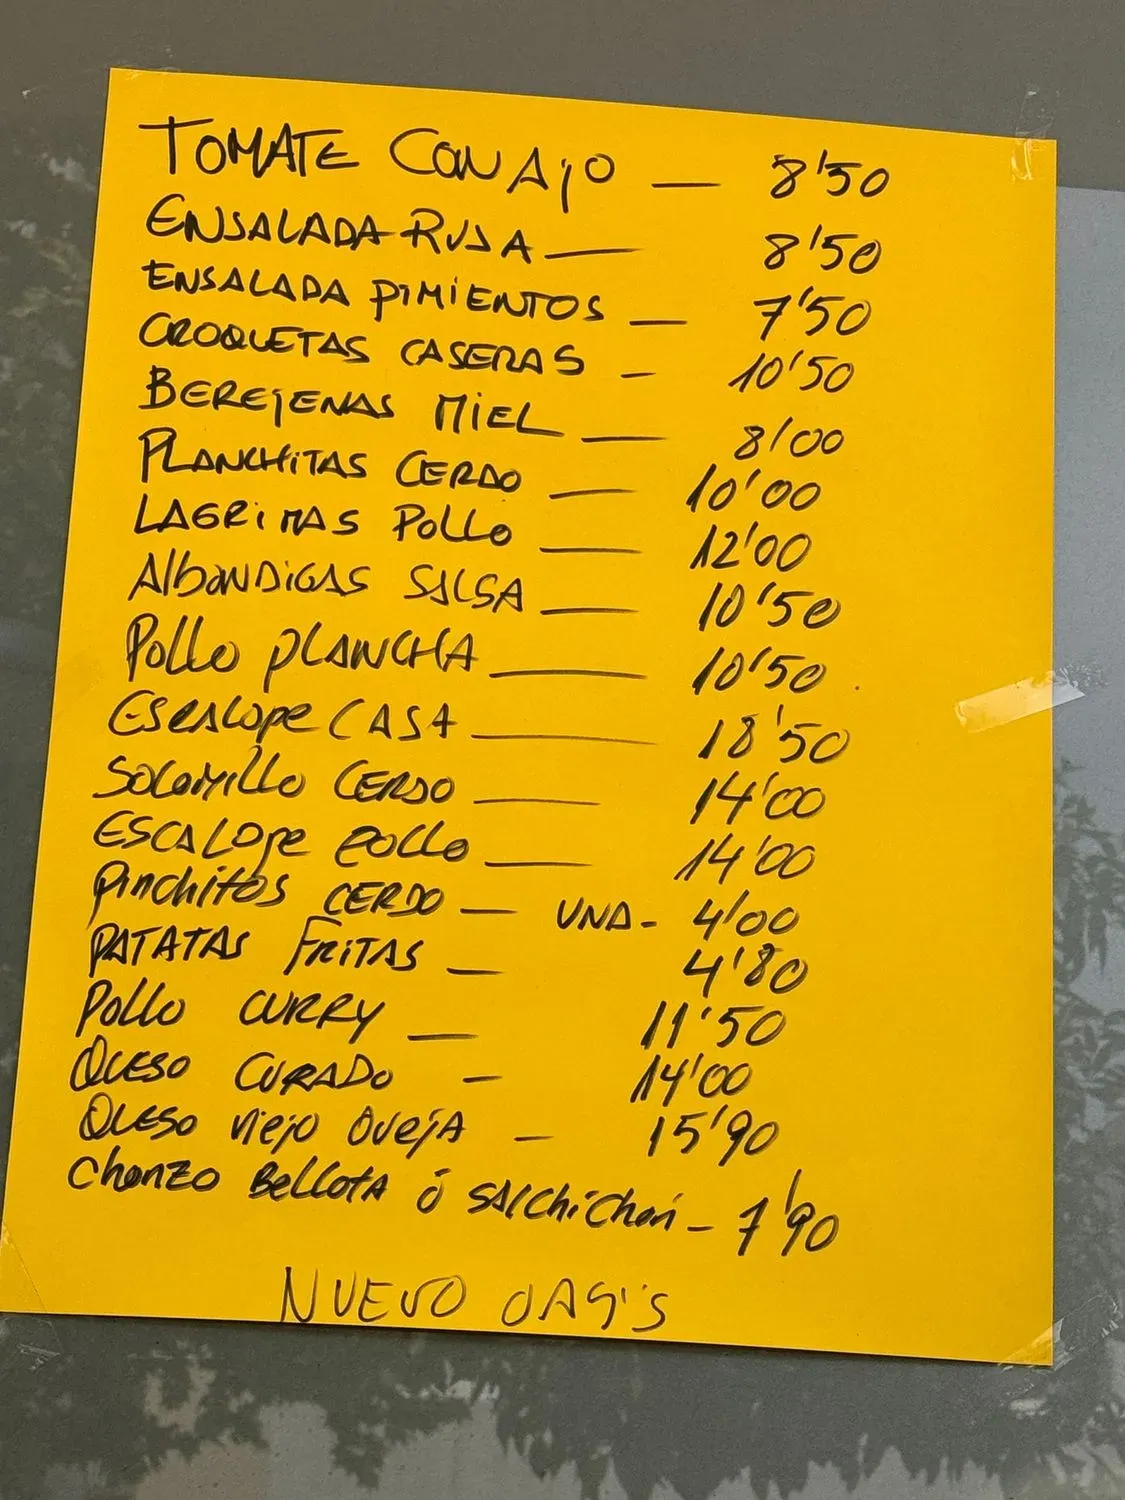 TOMATE CON AJO — 8'50
ENSALADA RUSA — 8'50
ENSALADA PIMIENTOS — 7'50
CROQUETAS CASERAS — 10'50
BEREJENAS MIEL — 8'00
PLANCHITAS CERDO — 10'00
LAGRIMAS POLLO — 12'00
AlbONDIGAS SALSA — 10'50
Pollo PLANCHA — 10'50
ESCALOPE CASA — 18'50
SOLOMILLO CERDO — 14'00
ESCALOPE POLLO — 14'00
Pinchitos CERDO — UND - 4'00
PATATAS FRITAS — 4'80
Pollo CURRY — 11'50
QUESO CURADO — 14'00
QUESO Viejo OVEJA — 15'90
Chorizo BELLOTA ó SALChiChón — 7'90
NUEVO